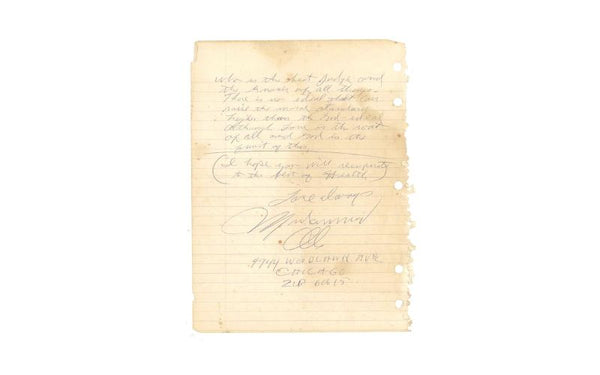 who is the Great Judge and
the Knower of all things.
There is no ideal that can
raise the moral standard
higher than the God ideal
Although love is the root
of all and God is the
of this,
(I hope you will
to the best of Health)
Love always
Muhammad
Ali
4944 WOODLAWN AVE
CHICAGO
ZIP 60615